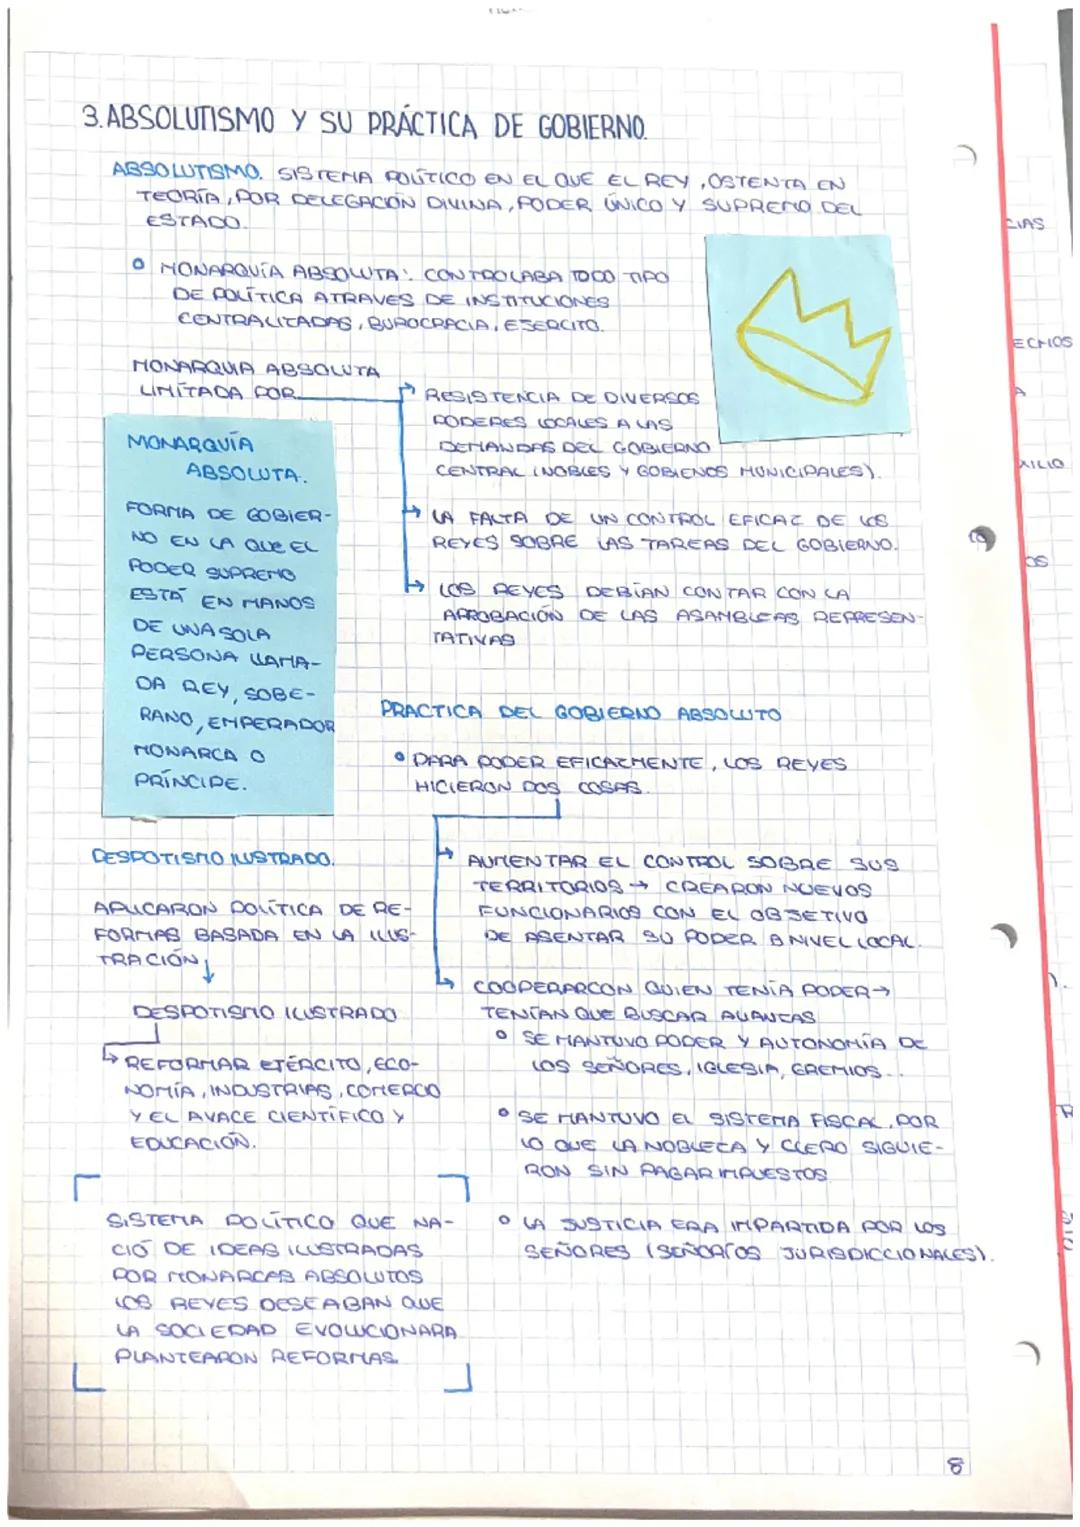 3.ABSOLUTISMO Y SU PRÁCTICA DE GOBIERNO.
ABSOLUTISMO. SISTEMA POLÍTICO EN EL QUE EL REY, OSTENTA EN
TEORÍA, POR DELEGACIÓN DIVINA, PODER ÚNICO Y SUPREMO DEL
ESTADO.
MONARQUÍA ABSOLUTA: CONTROLABA TODO TIPO
DE POLÍTICA ATRAVES DE INSTITUCIONES
CENTRALIZADAS, BUROCRACIA, EJERCITO.
MONARQUIA ABSOLUTA
LIMÍTADA POR
→ RESISTENCIA DE DIVERSOS
PODERES LOCALES A LAS
DEMANDAS DEL GOBIERNO
CENTRAL (NOBLES Y GOBIENOS MUNICIPALES).
→ LA FALTA DE UN CONTROL EFICAZ DE LOS
REYES SOBRE LAS TAREAS DEL GOBIERNO.
→ LOS REYES DEBÍAN CONTAR CON LA
APROBACIÓN DE LAS ASAMBLEAS REPRESEN-
TATIVAS
MONARQUÍA
ABSOLUTA.
FORMA DE GOBIER-
NO EN LA QUE EL
PODER SUPREMO
ESTÁ EN MANOS
DE UNA SOLA
PERSONA LLAMA-
DA REY, SOBE-
RANO, EMPERADOR
MONARCA O
PRÍNCIPE.
PRACTICA DEL GOBIERNO ABSOLUTO
PARA PODER EFICAZMENTE, LOS REYES
HICIERON DOS COSAS.
→ AUMENTAR EL CONTROL SOBRE SUS
TERRITORIOS → CREARON NUEVOS
FUNCIONARIOS CON EL OBJETIVO
DE ASENTAR SU PODER A NIVEL LOCAL.
→ COOPERARCON QUIEN TENÍA PODER →
TENÍAN QUE BUSCAR ALIANZAS
SE MANTUVO PODER Y AUTONOMÍA DE
LOS SEÑORES, IGLESIA, GREMIOS...
SE MANTUVO EL SISTEMA FISCAL, POR
LO QUE LA NOBLEZA Y CLERO SIGUIE-
RON SIN PAGAR IMPUESTOS
LA JUSTICIA ERA IMPARTIDA POR LOS
SEÑORES (SEÑORÍOS JURISDICCIONALES).
DESPOTISMO ILUSTRADO.
APLICARON POLÍTICA DE RE-
FORMAS BASADA EN LA ILUS-
TRACIÓN
DESPOTISMO ILUSTRADO
→ REFORMAR EJÉRCITO, ECO-
NOMÍA, INDUSTRIAS, COMERCIO
Y EL AVACE CIENTÍFICO Y
EDUCACIÓN.
SISTEMA POLÍTICO QUE NA-
CIÓ DE IDEAS ILUSTRADAS
POR MONARCAS ABSOLUTOS
LOS REYES DESEABAN QUE
LA SOCIEDAD EVOLUCIONARA
PLANTEARON REFORMAS.
8
CIAS
ECHOS
A
XILIO
OS